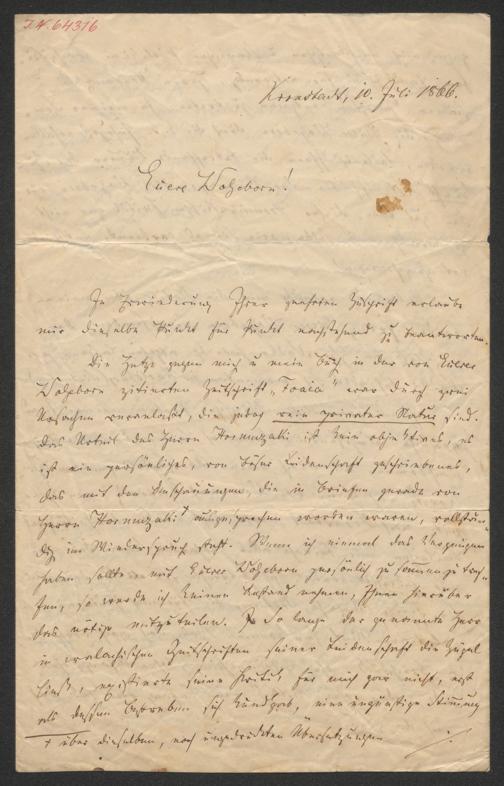 I.N. 64316
Kronstadt, 10. Juli 1866.
Euere Wolgeborn!
In Erwiederung Ihrer geehrten Zuschrift erlaube
mir dieselbe Punkt für Punkt nachstehend zu beantworten.
Die Hetze gegen mich u mein Buch in der von Euerer
Wolgeborn zitierten Zeitschrift „Foaia" war durch zwei
Ursachen veranlasst, die jedoch rein privater Natur sind.
Das Urteil des Herrn Hormuzaki ist kein objektives, es
ist ein persönliches, von böser Leidenschaft geschriebenes,
das mit den Anschauungen, die in Briefen gerade von
Herrn Hormuzaki + ausgesprochen worden waren, vollstän-
dig im Wiederspruch steht. Wenn ich einmal das Vergnügen
haben sollte mit Euerer Wolgeborn persönlich zusammenzutref-
fen, so werde ich keinen Anstand nehmen, Ihnen hierüber
das nötige mitzuteilen. So lange der genannte Herr
in walachischen Zeitschriften seiner Leidenschaft die Zügel
liess, existierte seine Kritik für mich gar nicht, erst
als dessen Bestreben sich kundgab, eine ungünstige Stimmung
+ über dieselben, noch ungedruckten Übersetzungen